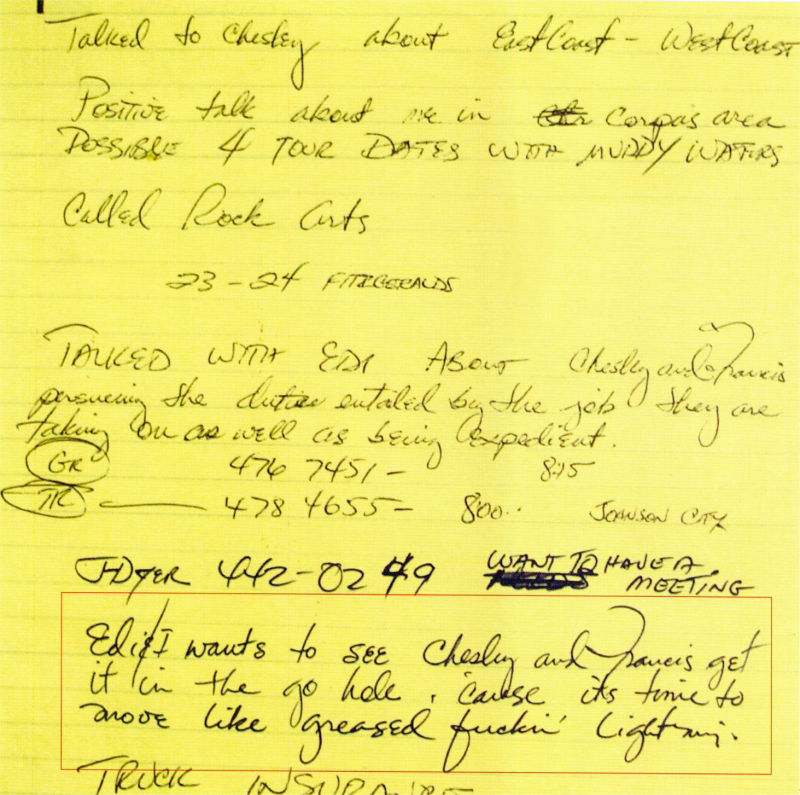 Talked to Chesley about East Coast - West Coast
Positive talk about me in Corpus area
POSSIBLE 4 TOUR DATES WITH MUDDY WATERS
Called Rock Arts
23-24 FITZGERALDS
TALKED WITH EDI ABOUT Chesley and Francis
persueing the duties entailed by the job they are
taking on as well as being expedient.
GR 476 7451- 8:15
TR - 478 4655- 8:00.. JOHNSON CITY
J-DYER 442-0249 WANT TO HAVE A
MEETING
Edi & I wants to SEE Chesley and Francis get
it in the go hole, 'cause its time to
move like greased fuckin' lightning.
TRUCK INSURANCE